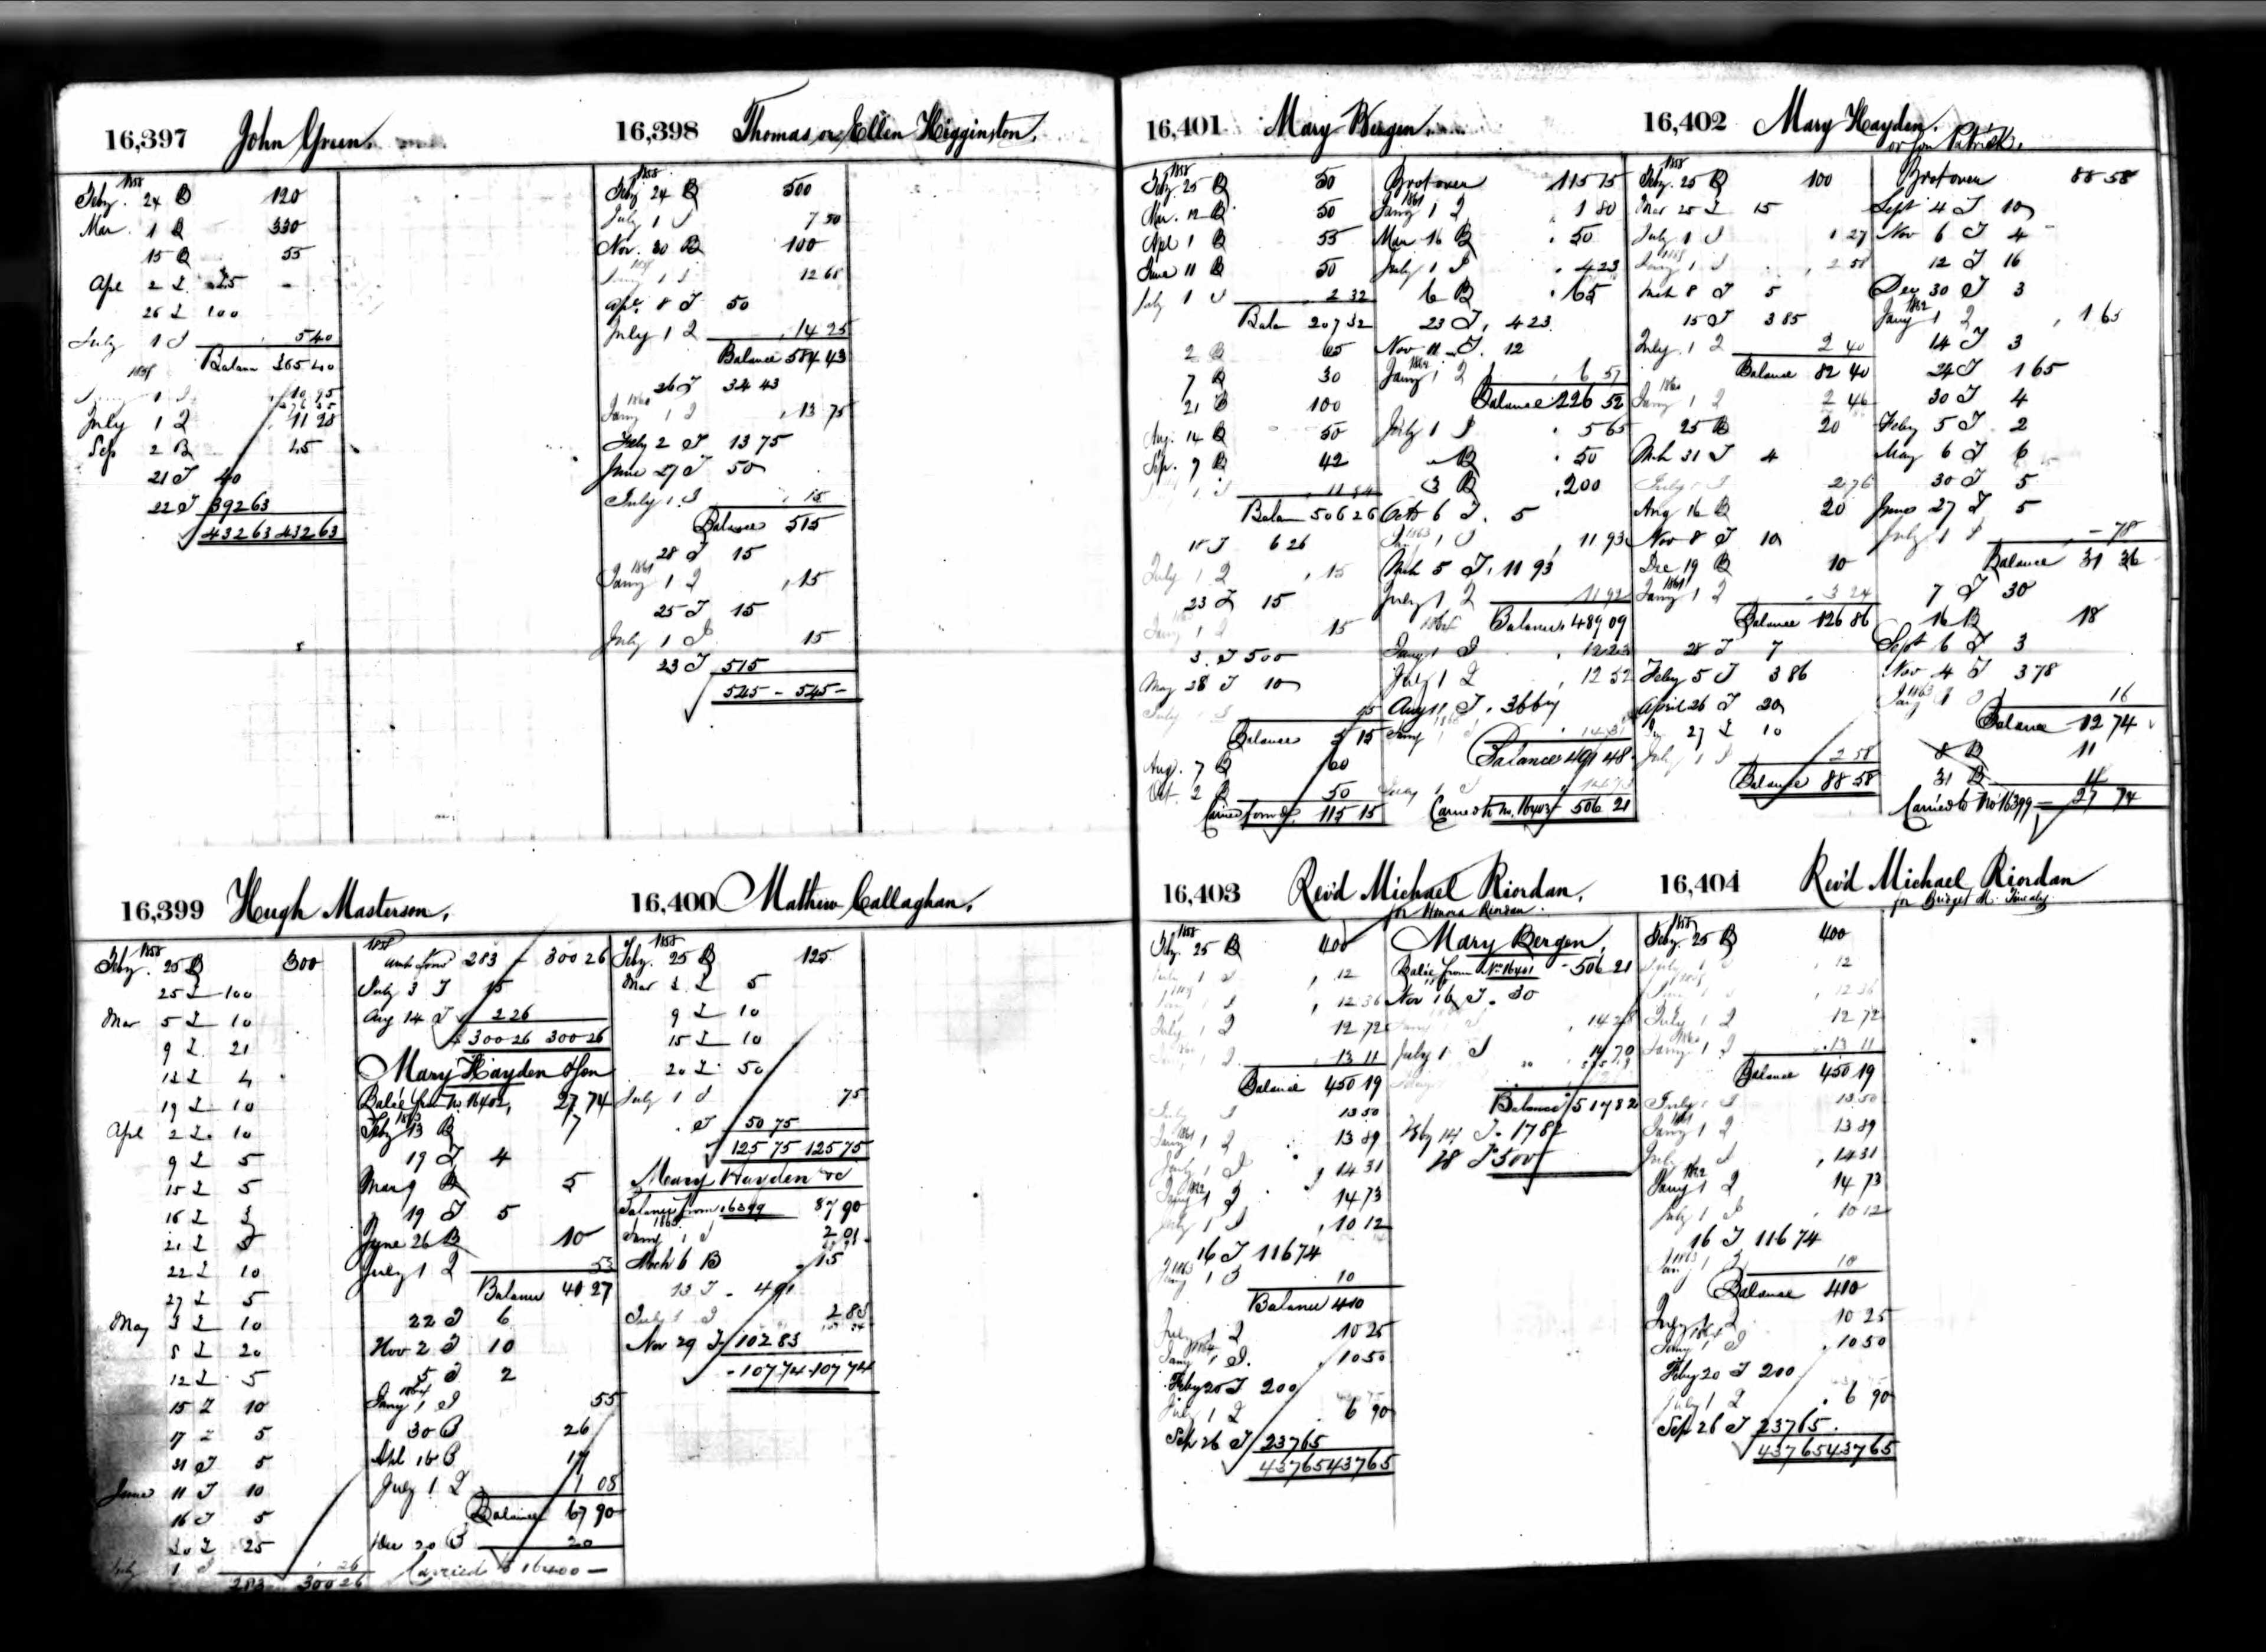 16,397 John Green.
Feby. 1858 24 B 120
Mar. 1 B 330
15 B 55
Apl 2 I 25
26 I 100
July 1 I 5 40
Balan 365 40
1859
1 I 10 95
July 1 I 11 28
Sep 2 B 45
21 I 40
22 I 392 63
432 63 432 63
16,398 Thomas or Ellen Higginston.
1858
Feby 24 B 500
July 1 I 7 50
Nov. 30 B 100
1 I 12 68
Apl. 8 I 50
July 1 I 14 25
Balance 584 43
26 I 34 43
1860
Jany 1 I 13 75
Feby 2 I 13 75
June 27 I 50
July 1 I 15
Balance 515
28 I 15
1861
Jany 1 I 15
25 I 15
July 1 I 15
23 I 515
545 - 545 -
16,399 Hugh Masterson.
1858
Feby. 25 B 300
25 I 100
Mar 5 I 10
9 I 21
12 I 4
19 I 10
Apl 2 I 10
9 I 5
15 I 5
16 I
21 I
22 I 10
27 I 5
May 3 I 10
8 I 20
12 I 5
15 I 10
17 I 5
31 I 5
June 11 I 10
16 I 5
I 25
1 I 26
283 300 26
1858
283 - 300 26
July 3 I 15
Aug 14 I 2 26
300 26 300 26
Mary Hayden or Son
Balce from No. 16402, 27 74
1863
Feby 13 B 7
19 I 4
Mar 9 B 5
19 I 5
June 26 B 10
July 1 I 53
Balance 41 27
22 I 6
Nov 2 I 10
5 I 2
1864
Jany 1 I 55
30 B 26
Apl 16 B 17
July 1 I 1 08
Balance 67 90
Dec 20 B 20
Carried to 16400 -
16,400 Mathew Callaghan.
1858
Feby. 25 B 125
Mar I 5
9 I 10
15 I 10
20 I 50
July 1 I 75
I 50 75
125 75 125 75
Mary Hayden &c
Balance from 16399 87 90
1865
Jany 1 I 2 01
Mch 6 B 15
13 I 4 91
July 1 I 2 83
Nov 29 I 102 83
107 74 107 74
16,401 Mary Bergen.
1858
Feby 25 B 50
Mar. 12 B 50
Apl 1 B 55
June 11 B 50
July 1 I 2 32
Balan 207 32
2 B 65
7 B 30
21 B 100
Aug. 14 B 50
Sep. 9 B 42
1 I 11 94
Balan 506 26
18 I 6 26
July 1 I 15
23 I 15
Jany 1 I 15
3 I 500
May 28 I 10
July I 15
Balance 5 15
Aug. 7 B 60
Oct. 2 B 50
Carried forwd. 115 15
Brot over 115 15
1861
Jany 1 I 1 80
Mar 16 B 50
July 1 I 4 23
6 B 65
23 I 4 23
Nov 11 I 12
1862
Jany 1 I 6 57
Balance 226 52
July 1 I 5 65
B 50
3 B 200
Oct 6 I 5
1863
1 I 11 93
Mch 5 I 11 93
July 1 I 11 92
Balance 489 09
1864
Jany 1 I 12 23
July 1 I 12 52
Aug 11 I 36 67
Jany 1 I 14 31
Balance 491 48
1 I 14 73
Carried to No. 16403 506 21
16,402 Mary Hayden.
or Son Patrick.
1858
Feby. 25 B 100
Mar 25 I 15
July 1 I 1 27
1859
Jany 1 I 2 58
Mch 8 I 5
15 I 3 85
July 1 I 2 40
Balance 82 40
1860
Jany 1 I 2 46
25 B 20
Mch 31 I 4
July 1 I 2 76
Aug 16 B 20
Nov 8 I 10
Dec 19 B 10
1861
Jany 1 I 3 24
Balance 126 86
28 I 7
Feby 5 I 3 86
April 26 I 20
27 I 10
July 1 I 2 58
Balance 88 58
Brot over 88 58
Sept 4 I 10
Nov 6 I 4
12 I 16
Dec 30 I 3
1862
Jany 1 I 1 65
14 I 3
24 I 1 65
30 I 4
Feby 5 I 2
May 6 I 6
30 I 5
June 27 I 5
July 1 I - 78
Balance 31 36
7 I 30
16 B 18
Sept 6 I 3
Nov 4 I 3 78
1863
Jany 1 I 16
Balance 12 74
8 B 11
31 B 4
Carried to No 16399 27 74
16,403 Rev'd Michael Riordan.
for Honora Riordan.
1858
Feby. 25 B 400
July 1 I 12
1859
1 I 12 36
July 1 I 12 72
1 I 13 11
Balance 450 19
July I 13 50
1861
Jany 1 I 13 89
July 1 I 14 31
1862
Jany 1 I 14 73
July 1 I 10 12
16 I 116 74
1863
Jany 1 I 10
Balance 410
July 1 I 10 25
1864
Jany 1 I 10 50
Feby 20 I 200
July 1 I 6 90
Sep 26 I 237 65
437 65 437 65
Mary Bergen.
Balce from No. 16401 506 21
Nov 16 I 30
14 28
July 1 I 14 70
Balance 517 82
Feby 14 I 17 82
28 I 500
16,404 Rev'd Michael Riordan
for Bridget M.
1858
Feby 25 B 400
July 1 I 12
1859
Jany 1 I 12 36
July 1 I 12 72
1860
Jany 1 I 13 11
Balance 450 19
July 1 I 13 50
1861
Jany 1 I 13 89
July 1 I 14 31
1862
Jany 1 I 14 73
July 1 I 10 12
16 I 116 74
1863
Jany 1 I 10
Balance 410
July 1 I 10 25
1864
Jany 1 I 10 50
Feby 20 I 200
July 1 I 6 90
Sep 26 I 237 65
437 65 437 65